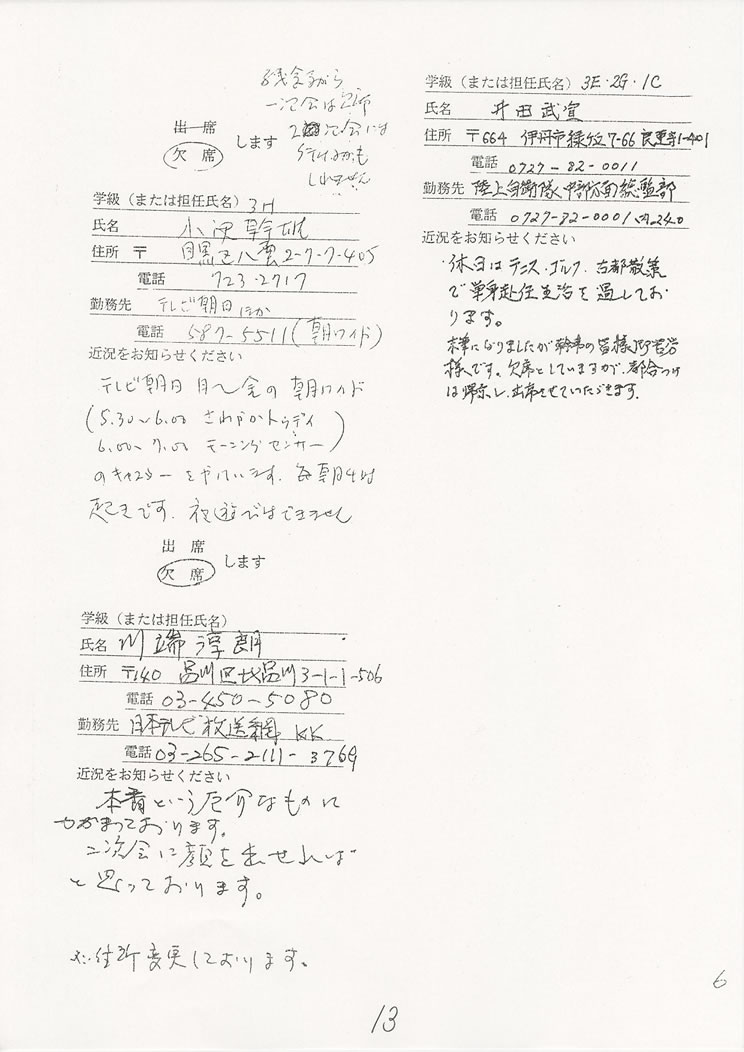 残念ながら
一次会は欠席
2次会には
行けるかも
しれません
出席
欠席
します
学級（または担任氏名）3H
氏名 小沢幹雄
住所 〒 目黒区八雲2-7-7-405
電話 723-2717
勤務先 テレビ朝日ほか
電話 587-5511(朝ワイド)
近況をお知らせください
テレビ朝日 月〜金の朝ワイド
(5.30〜6.00 さわやかトゥデイ
6.00〜7.00 モーニングセンサー)
のキャスターをやっています. 毎朝4時
起きです. 夜遊びはできません
出席
欠席
します
学級（または担任氏名）
氏名 川端淳朗
住所 〒140 品川区北品川3-1-1-506
電話 03-450-5080
勤務先 日本テレビ放送網KK
電話 03-265-2111-3769
近況をお知らせください
本番という厄介なものに
つかまっております。
二次会に顔を出せれば
と思っております。
※住所変更しております。
学級（または担任氏名）3E・2G・1C
氏名 井田武宣
住所 〒664 伊丹市緑ヶ丘7-66 1-401
電話 0727-82-0011
勤務先 陸上自衛隊中部方面総監部
電話 0727-82-0001 内240
近況をお知らせください
・休日はテニス、ゴルフ、古都散策
で単身赴任生活を過してお
ります。
末筆になりましたが幹事の皆様御苦労
様です。欠席としていますが、都合つけ
ば帰京し、出席させていただきます.
6
13